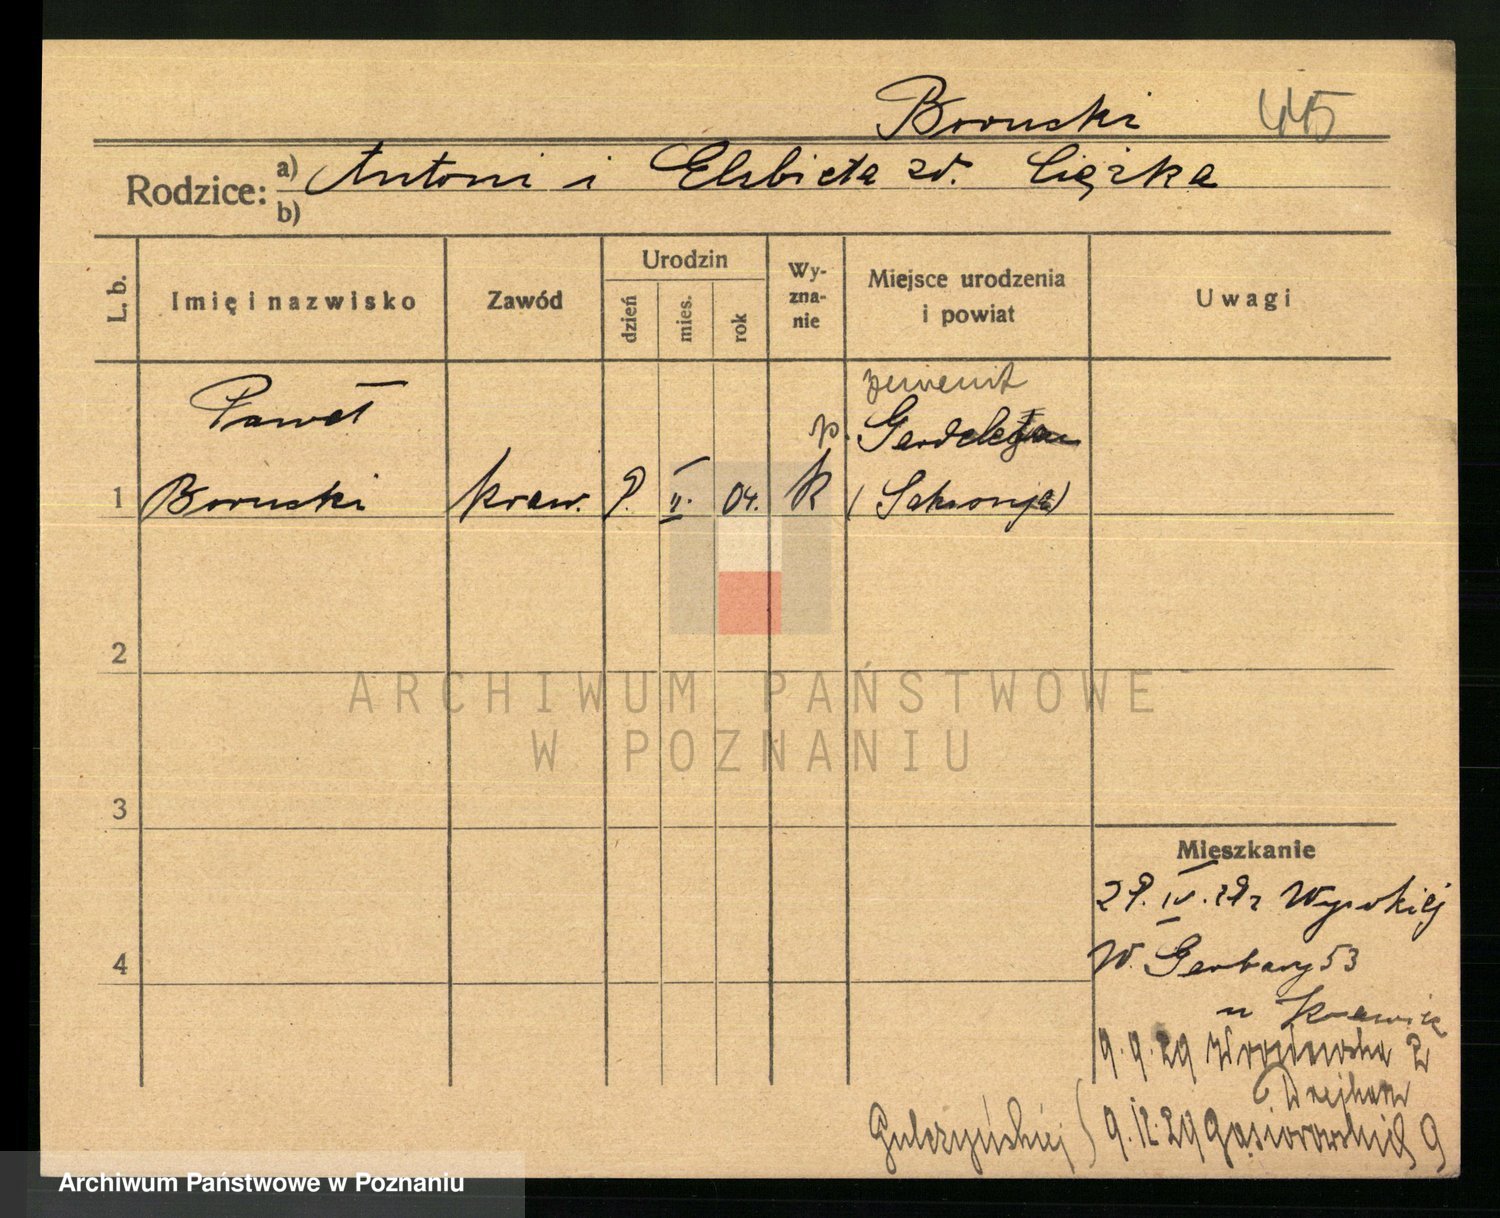 Boruski 445
Rodzice: a) Antoni i Elżbieta zd. Ciężka
b)
L. b. Imię i nazwisko Zawód Urodzin dzień mies. rok Wyznanie Miejsce urodzenia i powiat Uwagi
Paweł
p. Gardelegen
1 Boruski kraw. 9. II. 04. k (Saksonja)
2
3
4
Mieszkanie
29. IV. 29 z Wysokiej
W. Garbary 53
u Krawiec
9.9.29 Wrocławska 2
Gulczyńskiej) 9.12.29 Gąsiorowskich 9
ARCHIWUM PAŃSTWOWE
W POZNANIU
Archiwum Państwowe w Poznaniu